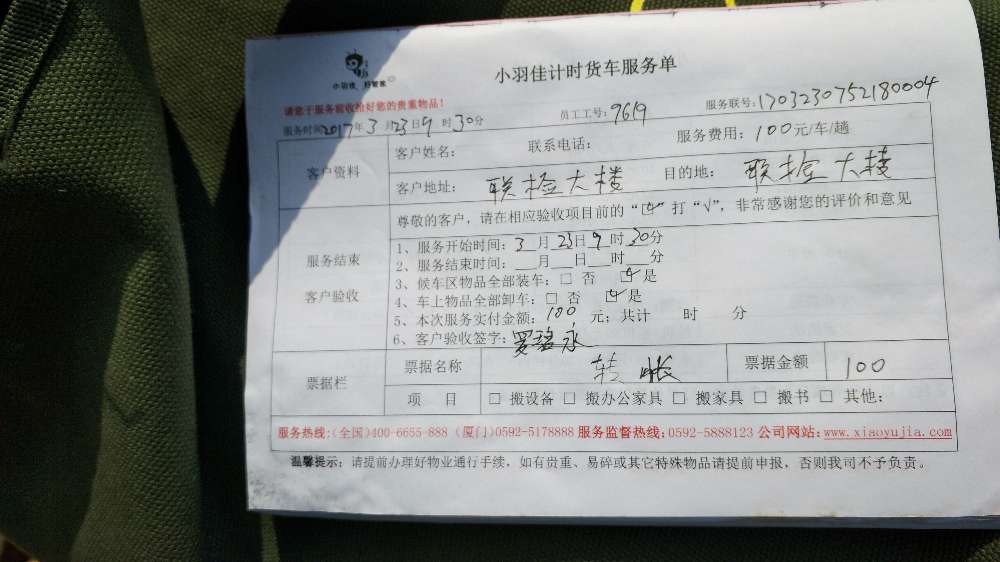 小羽佳 好管家
小羽佳计时货车服务单
请您于服务前收拾好您的贵重物品!
服务时间2017年3月23日9时30分 员工工号:9619 服务联号:1703230752180004
客户资料
客户姓名: 联系电话: 服务费用:100元/车/趟
客户地址: 联检大楼 目的地: 联检大楼
尊敬的客户,请在相应验收项目前的“☑”打“√”,非常感谢您的评价和意见
服务结束
客户验收
1、服务开始时间:3月23日9时30分
2、服务结束时间:___月___日___时___分
3、候车区物品全部装车:□ 否 ☑是
4、车上物品全部卸车:□ 否 ☑是
5、本次服务实付金额:100 元;共计 时 分
6、客户验收签字:罗碧永
票据栏
票据名称 转帐 票据金额 100
项 目 □ 搬设备 □ 搬办公家具 □ 搬家具 □ 搬书 □ 其他:
服务热线:(全国)400-6655-888 (厦门)0592-5178888 服务监督热线:0592-5888123 公司网站:www.xiaoyujia.com
温馨提示:请提前办理好物业通行手续,如有贵重、易碎或其它特殊物品请提前申报,否则我司不予负责。